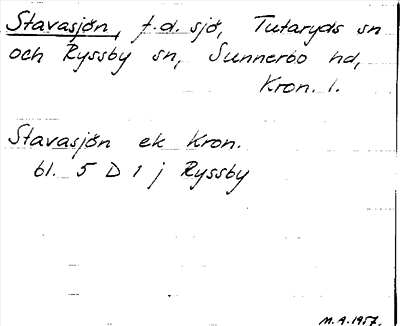 Stavasjön, f.d. sjö, Tutaryds sn
och Ryssby sn, Sunnerbo hd,
Kron. l.
Stavasjön ek Kron.
bl. 5 D 1 j Ryssby
M.A. 1957.